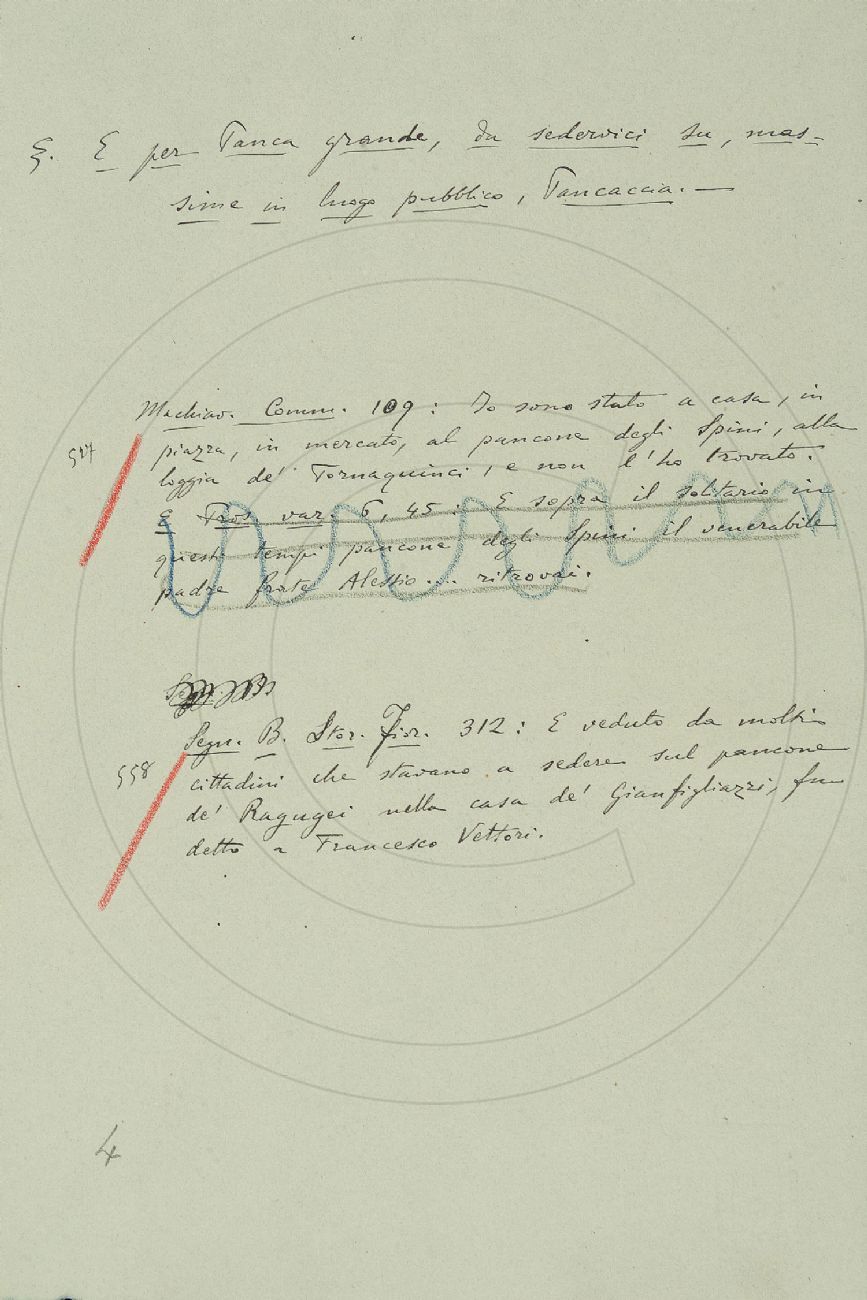 §. E per Panca grande, da sedervici su, mas-
sime in luogo pubblico, Pancaccia. —
Machiav. Comm. 109: Io sono stato a casa, in
517
piazza, in mercato, al pancone degli Spini, alla
loggia de' Tornaquinci, e non l'ho trovato.
E Pros. var. 6, 45: E sopra il solitario in
questi tempi pancone degli Spini il venerabile
padre frate Alessio... ritrovai.
Segn. B. Stor. Fior. 312: E veduto da molti
558
cittadini che stavano a sedere sul pancone
de' Ragugei nella casa de' Gianfigliazzi, fu
detto a Francesco Vettori.
4